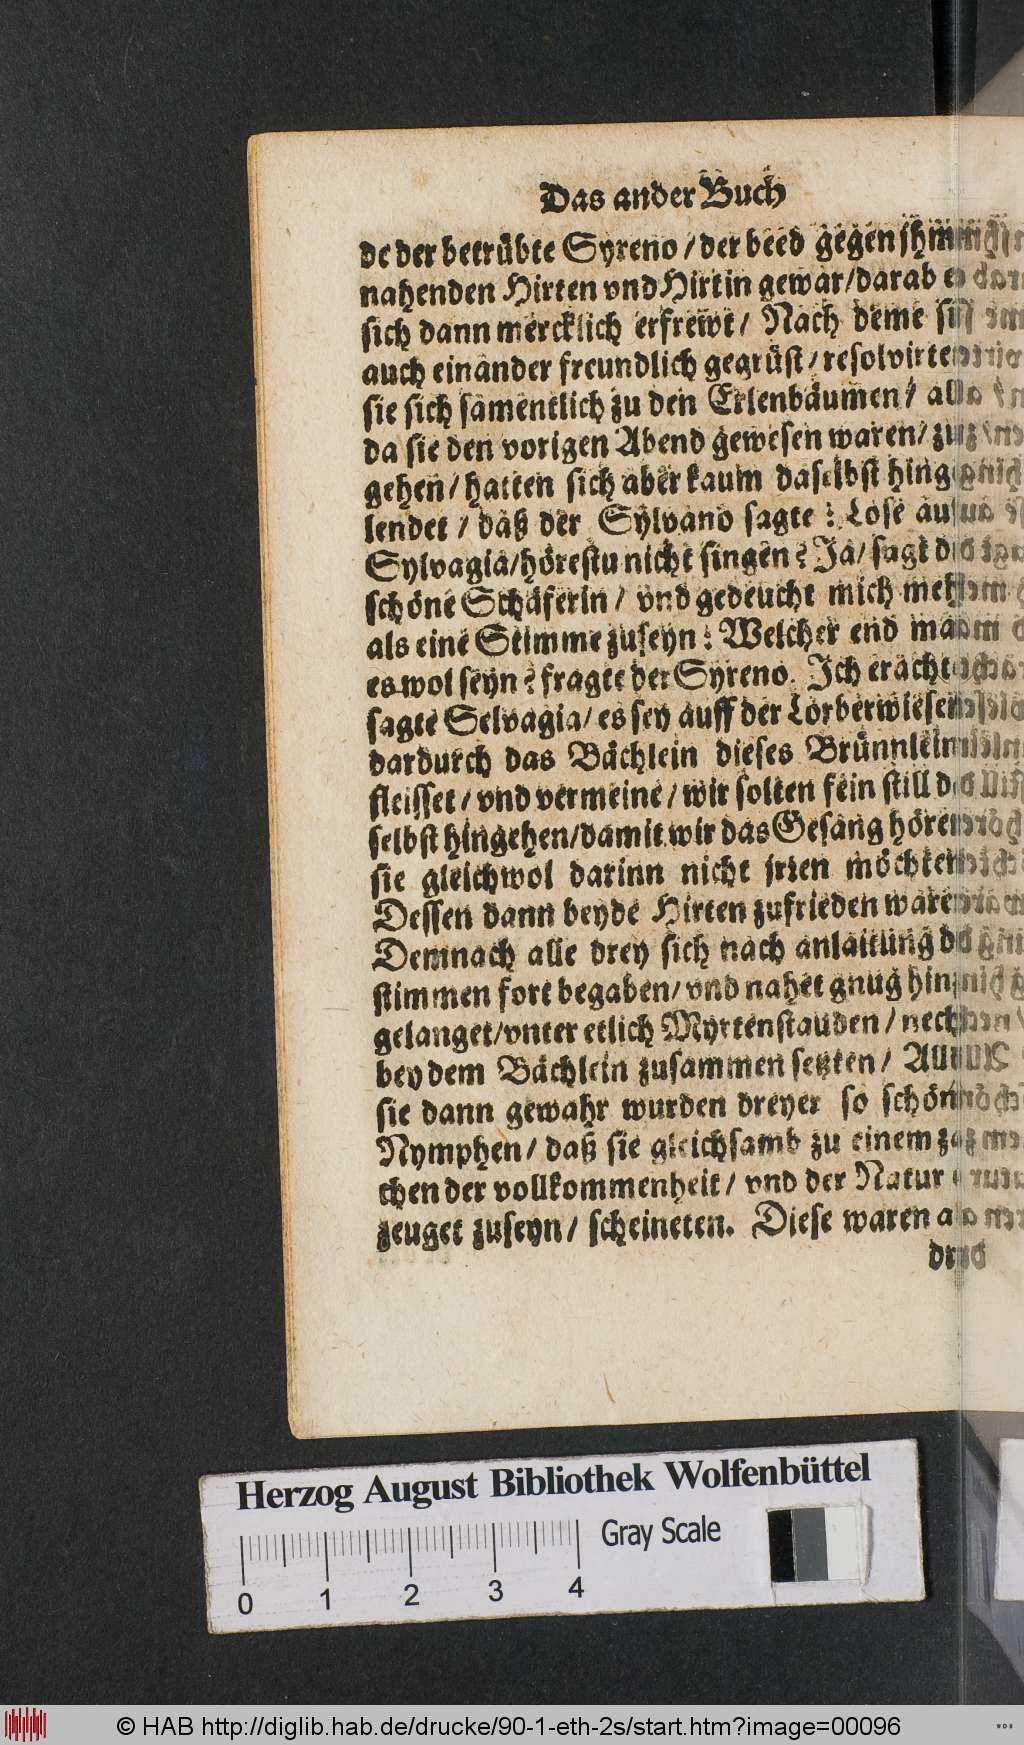 Das ander Buch
de der betrübte Syreno / der beed gegen jhm
nahenden Hirten vnd Hirtin gewar / darab er
sich dann mercklich erfrewt / Nach deme sie
auch einander freundlich gegrüst / resolvirten
sie sich sämentlich zu den Erlenbäumen / alla
da sie den vorigen Abend gewesen waren / zu
gehen / hatten sich aber kaum daselbst hinge
lendet / daß der Sylvano sagte: Lose auf
Sylvagia / hörestu nicht singen? Ja / sagt die
schöne Schäferin / vnd gedeucht mich mehr
als eine Stimme zuseyn: Welcher end mag
es wol seyn? fragte der Syreno. Ich erachte
sagte Selvagia / es sey auff der Lorberwiesen
dardurch das Bächlein dieses Brünnlein
fleisset / vnd vermeine / wir solten fein still da
selbst hingehen / damit wir das Gesang hören
sie gleichwol darinn nicht jrren möchten
Dessen dann beyde Hirten zufrieden waren
Demnach alle drey sich nach anlaitung der
stimmen fort begaben / vnd nahet gnug hin
gelanget / vnter etlich Myrtenstauden / nechst
bey dem Bächlein zusammen setzten / All
sie dann gewahr wurden dreyer so schön
Nymphen / daß sie gleichsamb zu einem zai
chen der vollkommenheit / vnd der Natur
zeuget zuseyn / scheineten. Diese waren a
Herzog August Bibliothek Wolfenbüttel
Gray Scale
0 1 2 3 4
© HAB http://diglib.hab.de/drucke/90-1-eth-2s/start.htm?image=00096